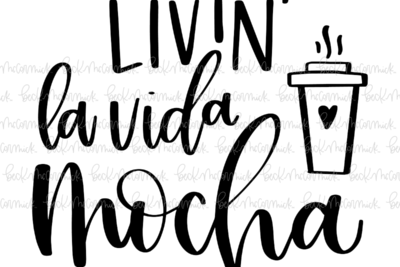 LIVIN'
la vida
mocha